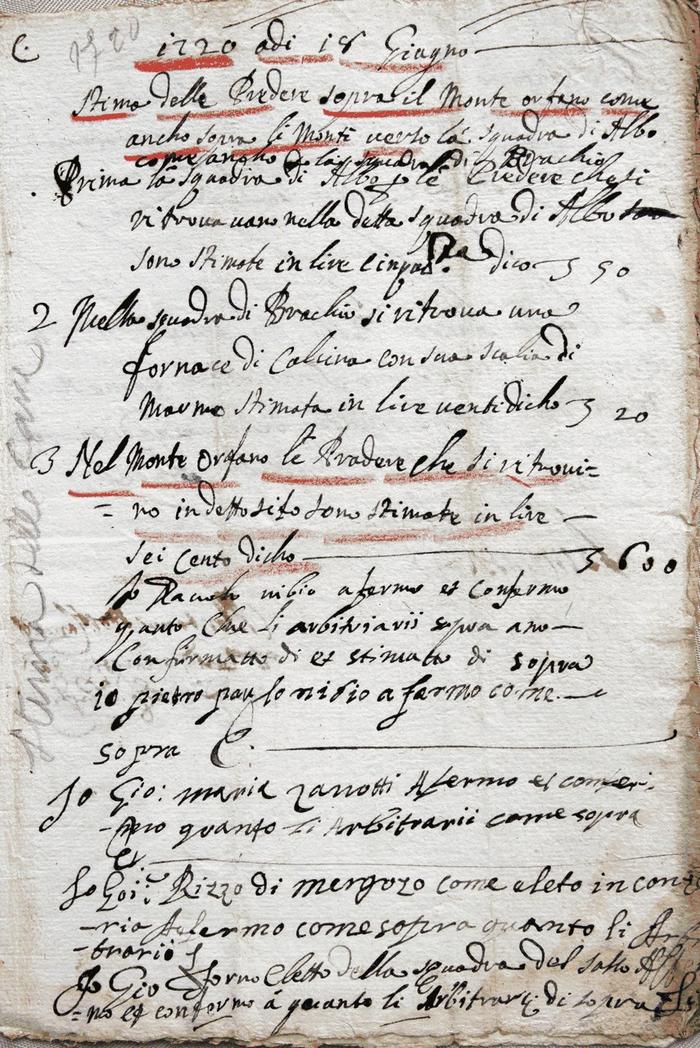 C. 1720
1720 adi 18 Giugno
stima delle Predere sopra il Monte orfano come
ancho sopra li Monti verso la squadra di Albo
come ancho la squadra di Brachio
Prima la squadra di Albo p le Predere che si
ritrovavano nella detta squadra di Albo
sono stimate in live dico 50
2 Nella squadra di Brachio si ritrova una
fornace di Calcina con sua scalia di
Marmo stimata in live venti dicho 20
3 Nel Monte Orfano le Pradere che si ritrovi=
= no in detto sito sono stimate in live
sei cento dicho 600
Io Paulo nibio afermo et confermo
quanto Che li arbitrarii sopra ano
Confirmatto di et stimato di sopra
io pietro paulo nibio a fermo come
sopra C.
Io Gio: maria zanotti Afermo et
quanto li Arbitrarii come sopra
Io Rizzo di mergozo come eleto in
-ria Afermo come sopra quanto li
-trarii
Io Gio Eletto della squadra del
=no et confermo á quanto li Arbitrarij di sopra
stima delle cave